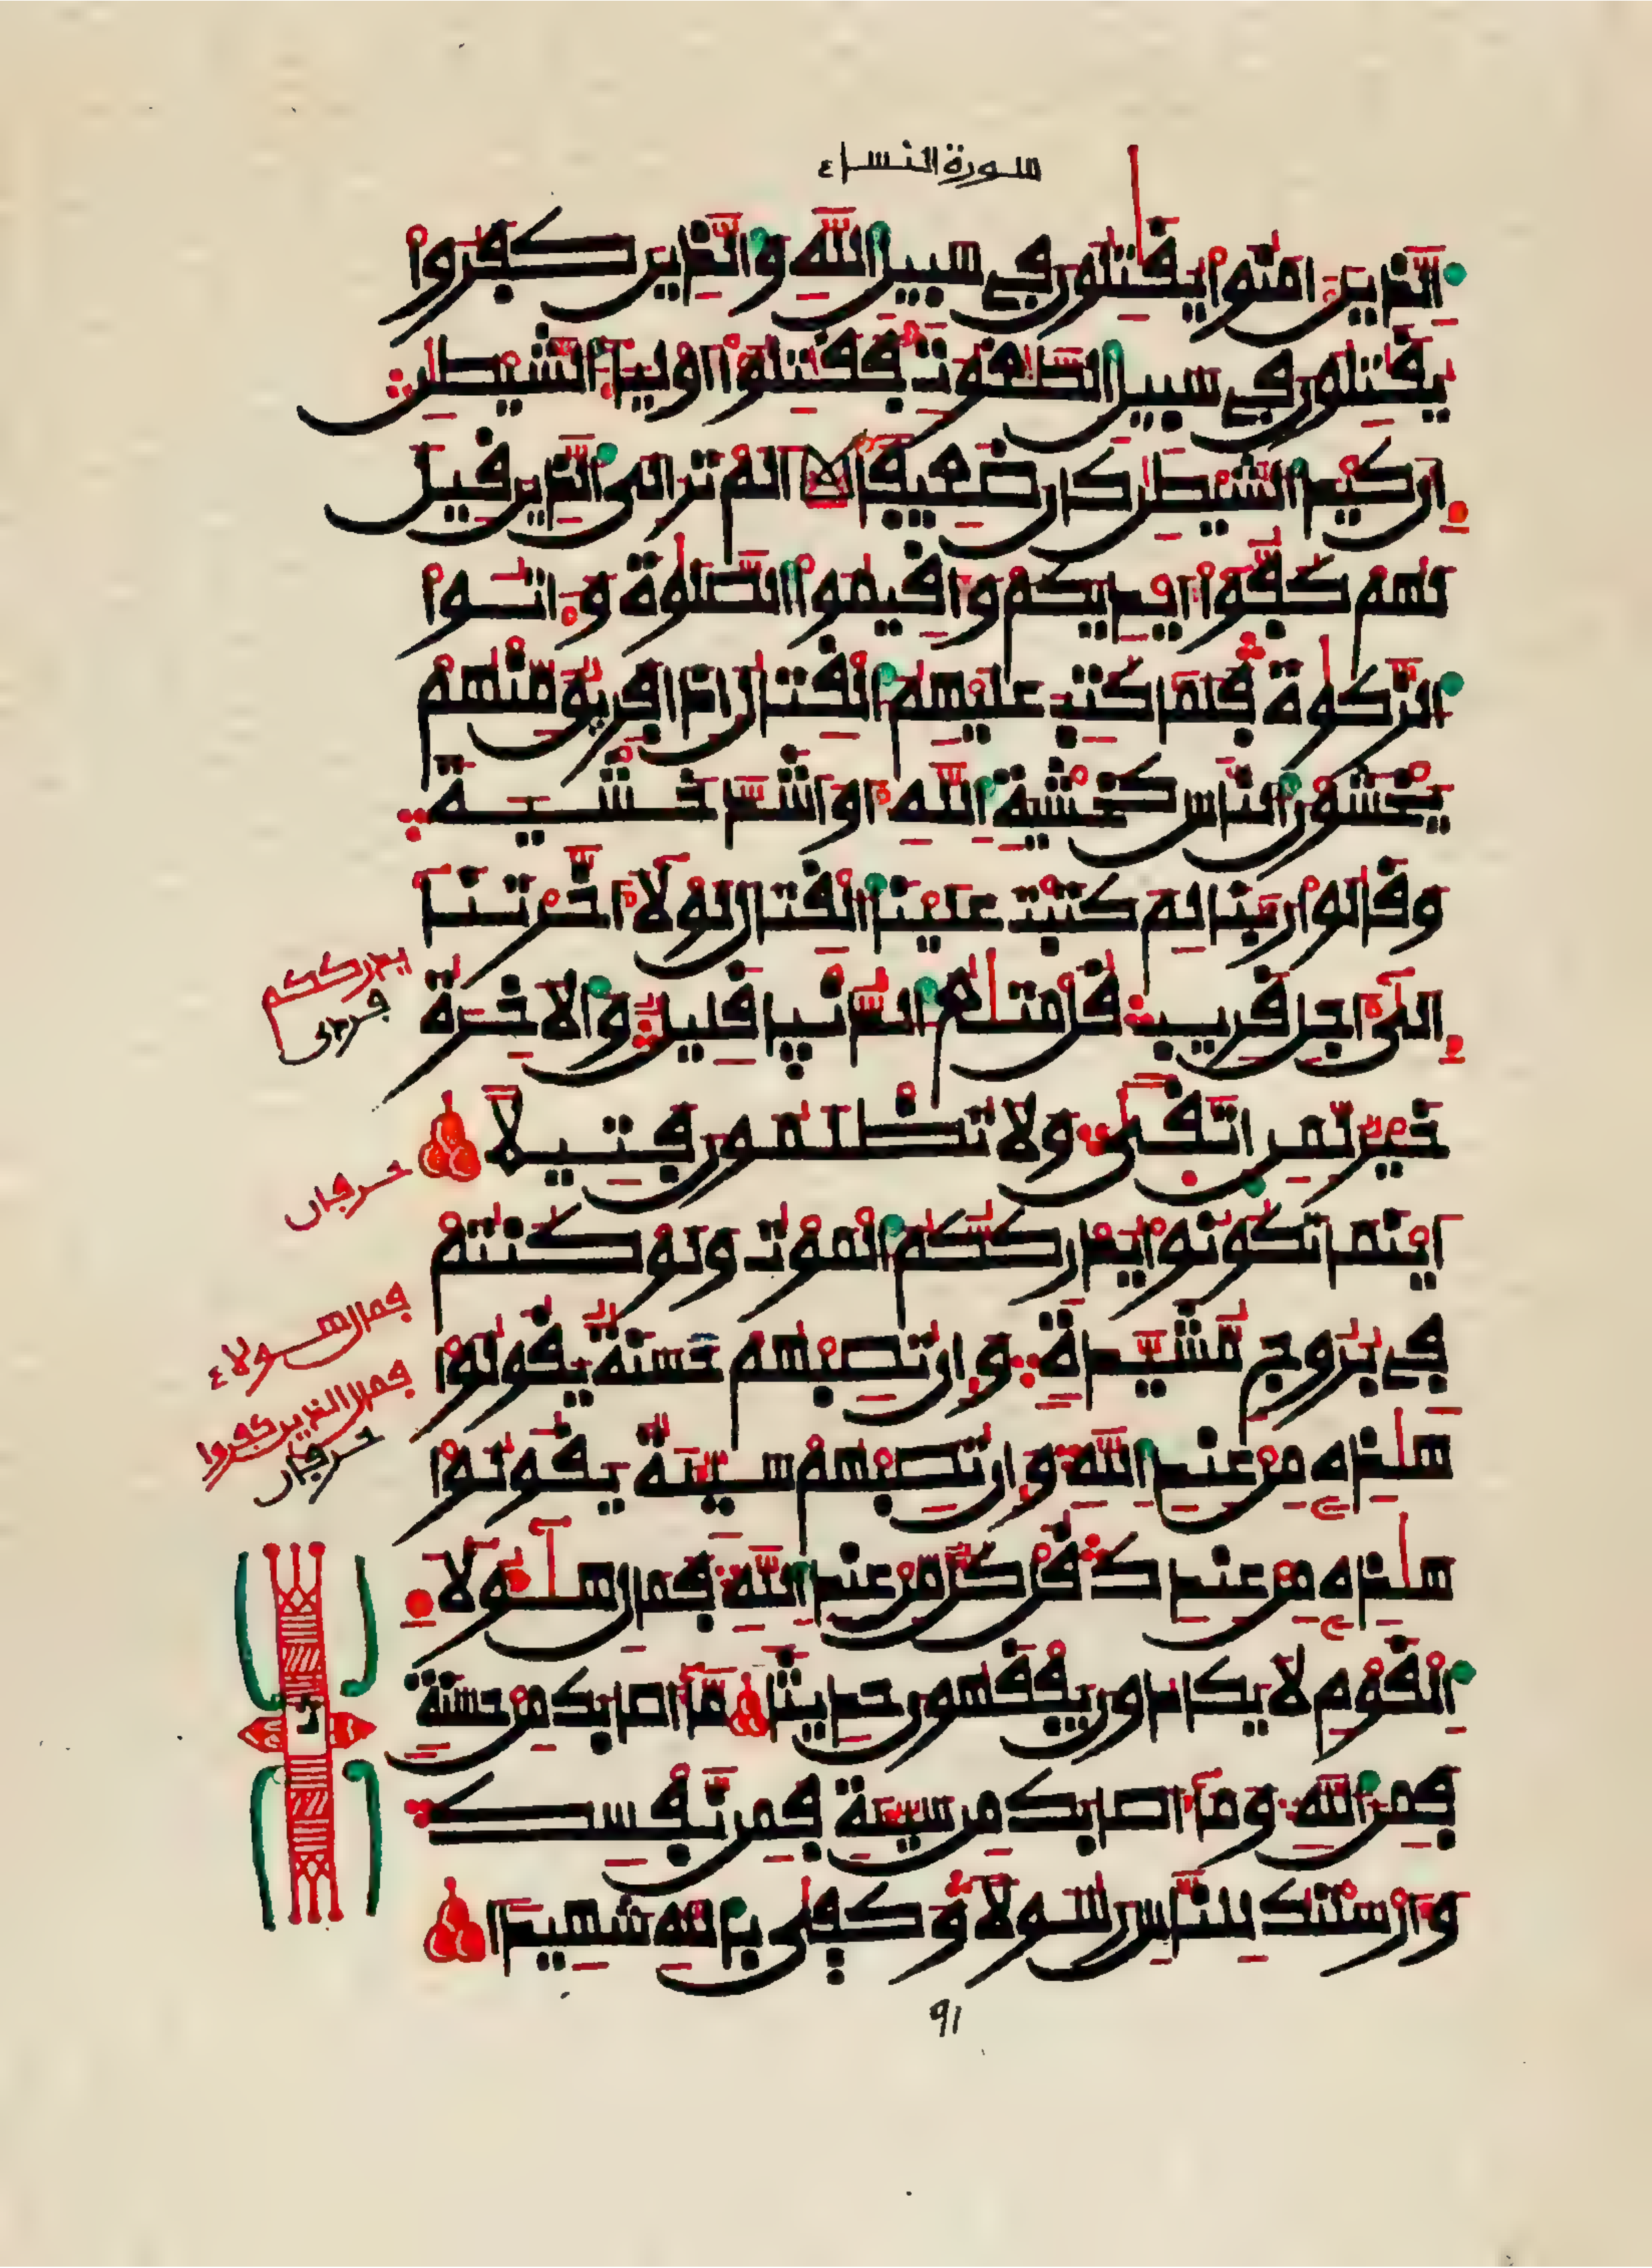 سورة النساء
الذين امنوا يقتلون في سبيل الله والذين كفروا
يقتلون في سبيل الطغوت فقتلوا اولياء الشيطن
ان كيد الشيطن كان ضعيفا الم تر الى الذين قيل
لهم كفوا ايديكم واقيموا الصلوة واتوا
الزكوة فلما كتب عليهم القتال اذا فريق منهم
يخشون الناس كخشية الله او اشد خشية
وقالوا ربنا لم كتبت علينا القتال لولا اخرتنا
الى اجل قريب قل متع الدنيا قليل والاخرة
يدرككم
حرفان
خير لمن اتقى ولا تظلمون فتيلا
حرفان
اينما تكونوا يدرككم الموت ولو كنتم
في بروج مشيدة وان تصبهم حسنة يقولوا
فمال هولاء
هذه من عند الله وان تصبهم سيئة يقولوا
فمال الذين كفروا
حرفان
هذه من عندك قل كل من عند الله فمال هولاء
القوم لا يكادون يفقهون حديثا ما اصابك من حسنة
فمن الله وما اصابك من سيئة فمن نفسك
وارسلنك للناس رسولا وكفى بالله شهيدا
٩١